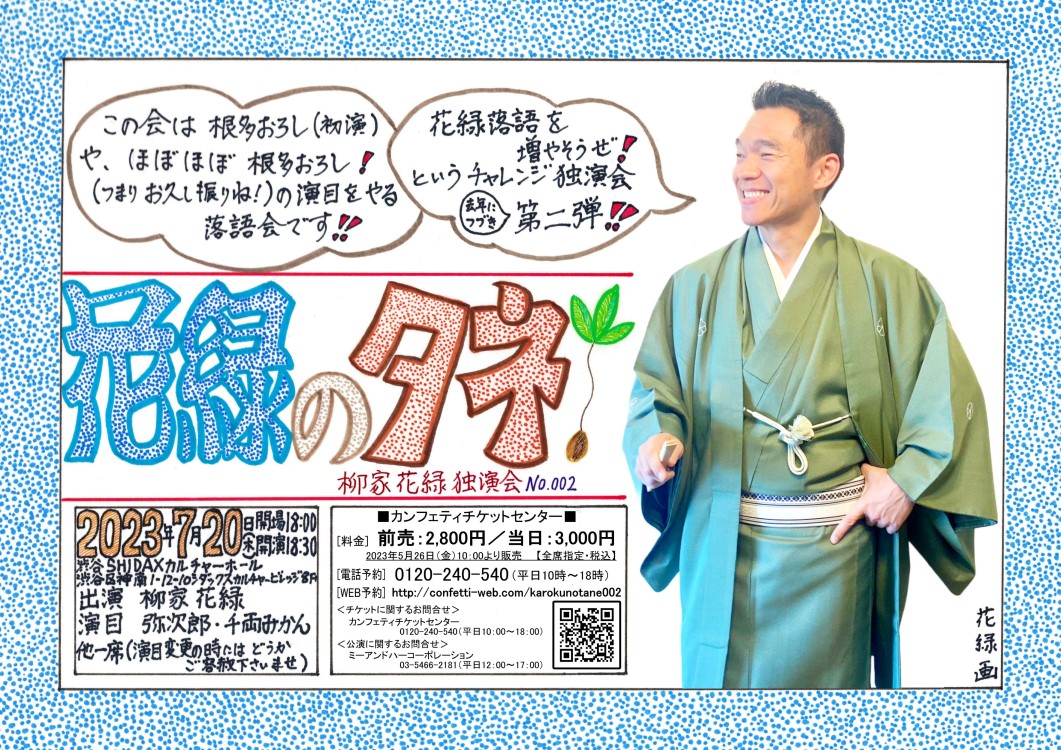 この会は 根多おろし(初演)
や、ほぼほぼ 根多おろし!
(つまり お久し振りね!)の演目をやる
落語会です!!
花緑落語を
増やそうぜ!
というチャレンジ独演会
去年に
つづき
第二弾!!
花緑のタネ
柳家花緑独演会 No.002
2023年7月20日(木)開場18:00
開演18:30
渋谷SHIDAXカルチャーホール
渋谷区神南1-12-10シダックスカルチャービレッジ8F
出演 柳家 花緑
演目 弥次郎・千両みかん
他一席(演目変更の時には どうか
ご容赦下さいませ)
■カンフェティチケットセンター■
[料金] 前売:2,800円/当日:3,000円
2023年5月26日(金)10:00より販売 【全席指定・税込】
[電話予約] 0120-240-540(平日10時~18時)
[WEB予約] http://confetti-web.com/karokunotane002
<チケットに関するお問合せ>
カンフェティチケットセンター
0120-240-540(平日10:00~18:00)
<公演に関するお問合せ>
ミーアンドハーコーポレーション
03-5466-2181(平日12:00~17:00)
花緑画